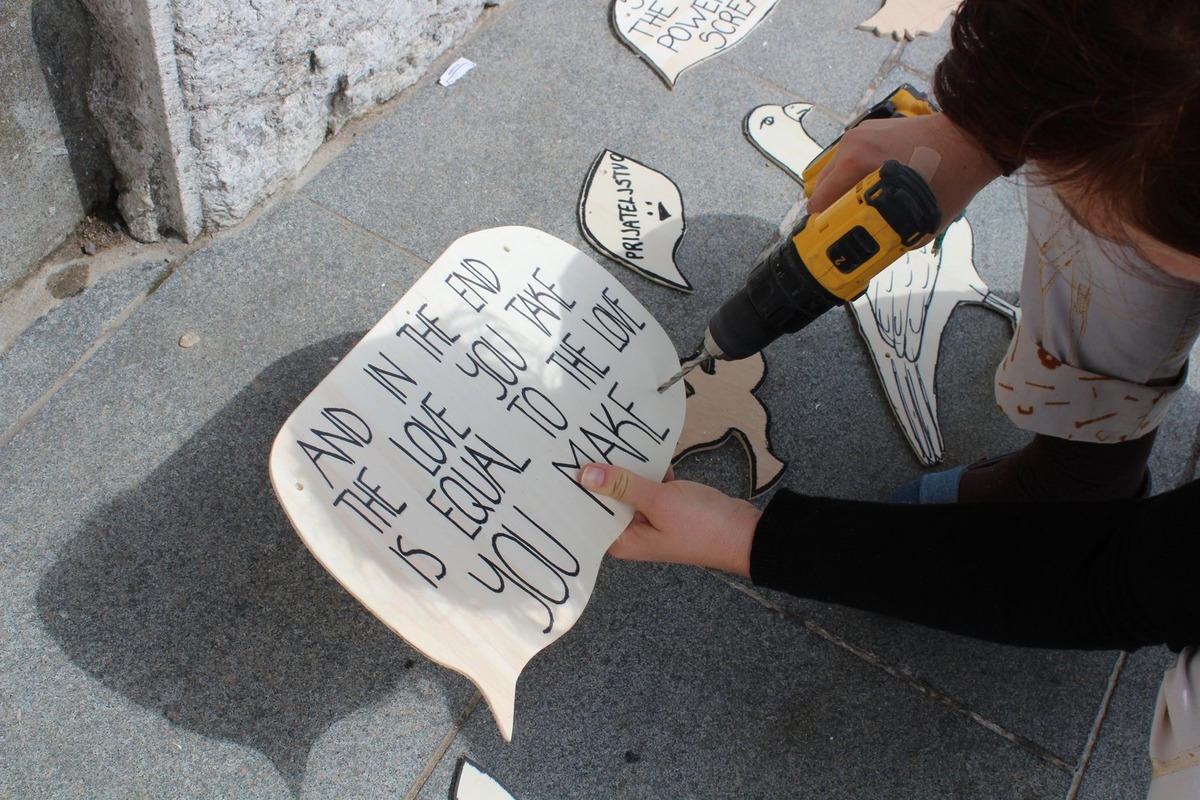 THE
POWER
SCREA
PRIJATELJSTVO
2
AND IN THE END
THE LOVE YOU TAKE
IS EQUAL TO THE LOVE
YOU MAKE